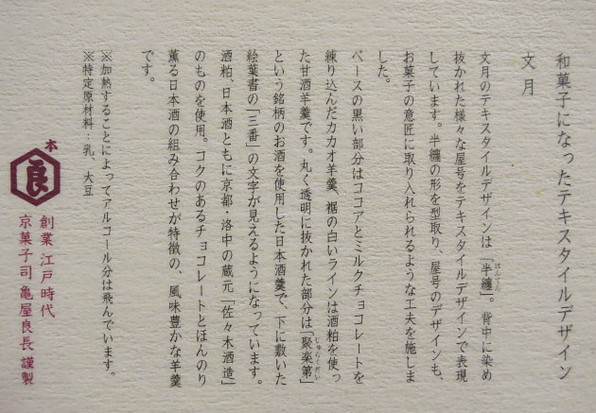 和菓子になったテキスタイルデザイン
文月
文月のテキスタイルデザインは「半纏」。背中に染め
はんてん
抜かれた様々な屋号をテキスタイルデザインで表現
しています。半纏の形を型取り、屋号のデザインも、
お菓子の意匠に取り入れられるような工夫を施しま
した。
ベースの黒い部分はココアとミルクチョコレートを
練り込んだカカオ羊羹、裾の白いラインは酒粕を使っ
た甘酒羊羹です。丸く透明に抜かれた部分は「聚楽第」
じゅらくだい
という銘柄のお酒を使用した日本酒羹で、下に敷いた
絵葉書の「三番」の文字が見えるようになっています。
酒粕、日本酒ともに京都・洛中の蔵元「佐々木酒造」
のものを使用。コクのあるチョコレートとほんのり
薫る日本酒の組み合わせが特徴の、風味豊かな羊羹
です。
※加熱することによってアルコール分は飛んでいます。
※特定原材料：乳、大豆
本
良
創業 江戸時代
京菓子司 亀屋良長 謹製